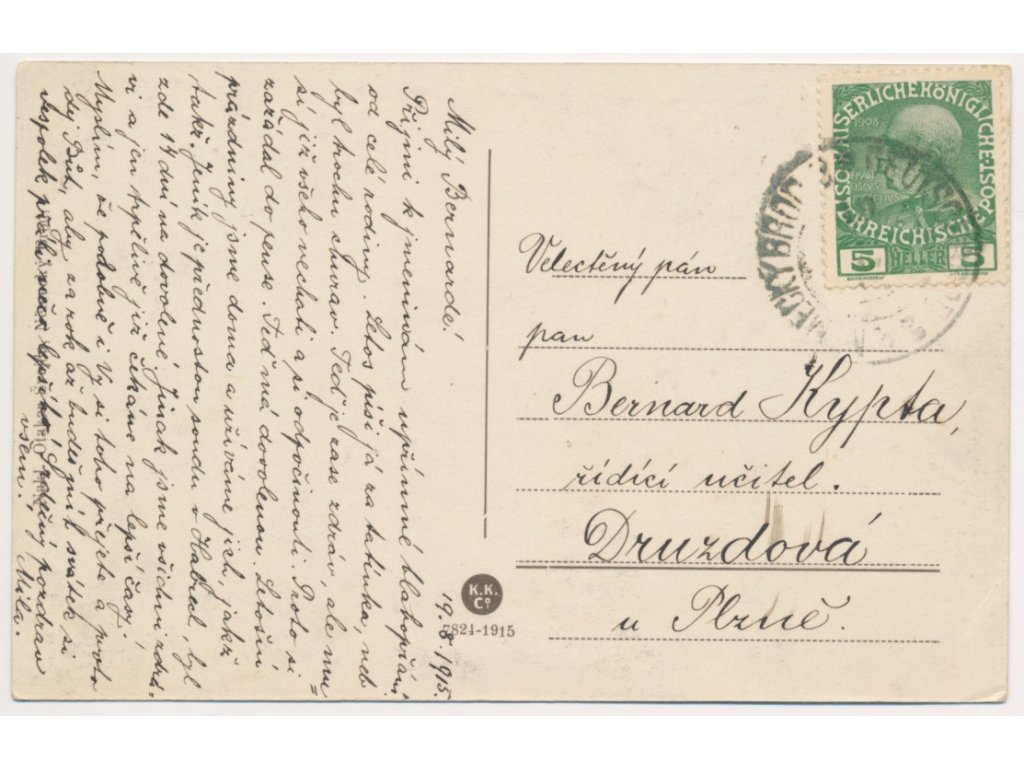 19./8. 1915.
Milý Bernarde!
Přijmi k jmeninám upřímné blahopřání
od celé rodiny. Letos píši já za tatínka, neb
byl trochu churav. Teď je zase zdráv ale mu=
sí již všeho nechati a si odpočinouti. Proto si
zažádal do pense. Teď má dovolenou. Letošní
prázdniny jsme doma a užíváme jich, jakž
takž. Jeník je přednostou soudu v Habrech, byl
zde 14 dní na dovolené. Jinak jsme všichni zdrá-
vi a jen trpělivě již čekáme na lepší časy.
Myslím, že podobně i Vy si toho přejete a proto
dej Bůh, aby za rok až budeš míti svátek si
všem. Míla.
Velectěný pán
pan
Bernard Kypta,
řídící učitel.
Druzdová
u Plzně.
K.K.
Co
7824-1915
KAISERLICHE KÖNIGLICHE POST
1908
ÖSTERREICHISCHE
5 HELLER 5
NĚMECKÝ BROD